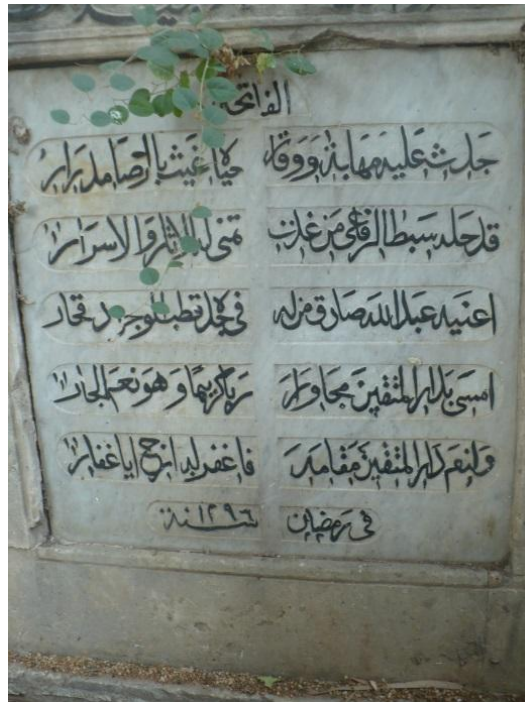 الفاتحة
جدث عليه مهابة ووقار حياه غيث بالرضا مدرار
قد حله سبط الرفاعي من غدت تمنى له الاثار والاسرار
اعنيه عبد الله صارف منزله في مجد قطب الوجود فخار
امسى بدار المتقين مجاورا ربا كريما وهو نعم الجار
ولنعم دار المتقين مقامه فاغفر له ارخ ايا غفار
في رمضان سنة ١٢٩٦